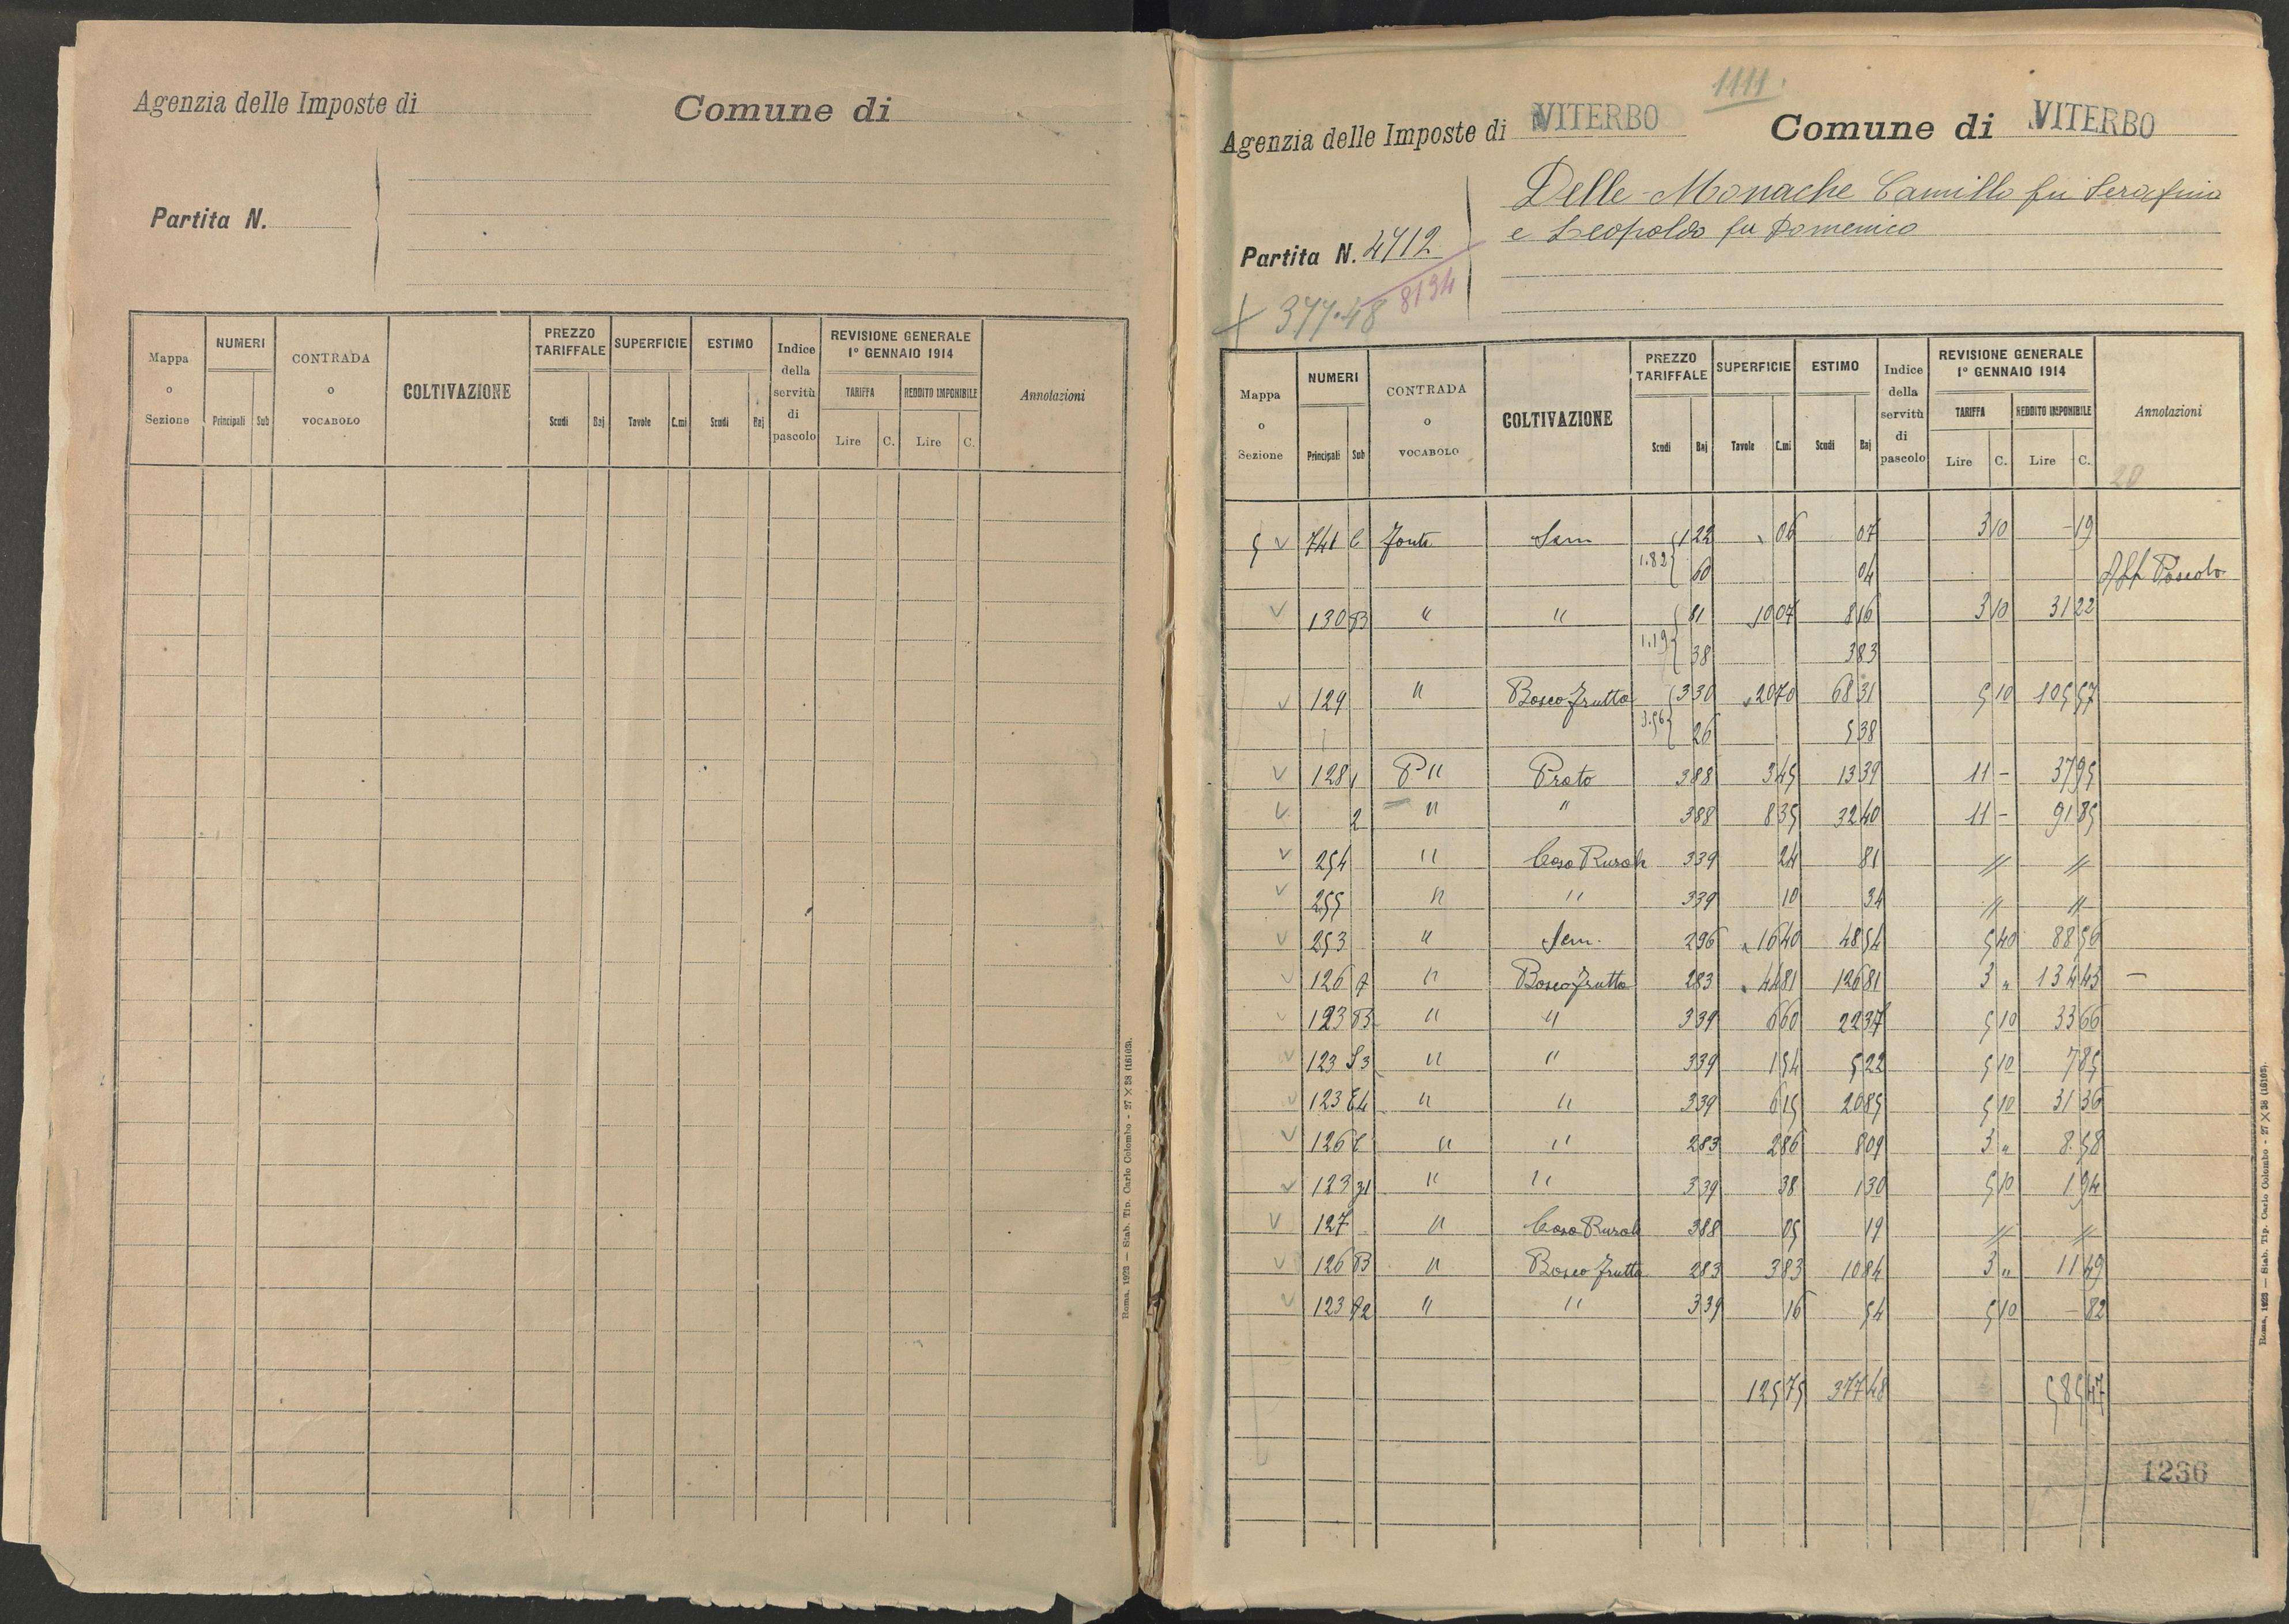 Agenzia delle Imposte di
Comune di
Partita N.
Mappa o Sezione
NUMERI
Principali Sub
CONTRADA o VOCABOLO
COLTIVAZIONE
PREZZO TARIFFALE
Scudi Baj
SUPERFICIE
Tavole C.mi
ESTIMO
Scudi Baj
Indice della servitù di pascolo
REVISIONE GENERALE
1° GENNAIO 1914
TARIFFA REDDITO IMPONIBILE
Lire C. Lire C.
Annotazioni
Roma, 1923 — Stab. Tip. Carlo Colombo - 27 X 38 (16103).
1111.
Agenzia delle Imposte di VITERBO
Comune di VITERBO
Delle Monache Camillo fu Serafino
e Leopoldo fu Domenico
Partita N. 4712
8134
377.48
Mappa o Sezione
NUMERI
Principali Sub
CONTRADA o VOCABOLO
COLTIVAZIONE
PREZZO TARIFFALE
Scudi Baj
SUPERFICIE
Tavole C.mi
ESTIMO
Scudi Baj
Indice della servitù di pascolo
REVISIONE GENERALE
1° GENNAIO 1914
TARIFFA REDDITO IMPONIBILE
Lire C. Lire C.
Annotazioni
20
5 V 741 C Sem 1 22 06 07 3 10 - 19
1.82 60 04 Aff Pascolo
V 130 B " " 81 10 07 8 16 3 10 31 22
1.19 38 3 83
V 129 " Bosco frutto 3 30 20 70 68 31 5 10 105 57
3.56 26 5 38
V 128 1 P " Prato 3 88 3 45 13 39 11 - 37 95
V 2 " " 3 88 8 35 32 40 11 - 91 85
V 254 " Casa Rurale 3 39 24 81 // //
V 255 " " 3 39 10 34 // //
V 253 " Sem. 2 96 16 40 48 54 5 40 88 56
V 126 A " Bosco frutto 2 83 44 81 126 81 3 " 134 43 —
V 123 B " " 3 39 6 60 22 37 5 10 33 66
V 123 S3 " " 3 39 1 54 5 22 5 10 7 85
V 123 E4 " " 3 39 6 15 20 85 5 10 31 36
V 126 C " " 2 83 2 86 8 09 3 " 8 58
V 123 " " 3 39 38 1 30 5 10 1 94
V 127 " Casa Rurale 3 88 05 19 // //
V 126 B " Bosco frutto 2 83 3 83 10 84 3 " 11 49
V 123 A2 " " 3 39 16 54 5 10 - 82
125 75 377 48 585 47
1236
Roma, 1923 — Stab. Tip. Carlo Colombo - 27 X 38 (16103).